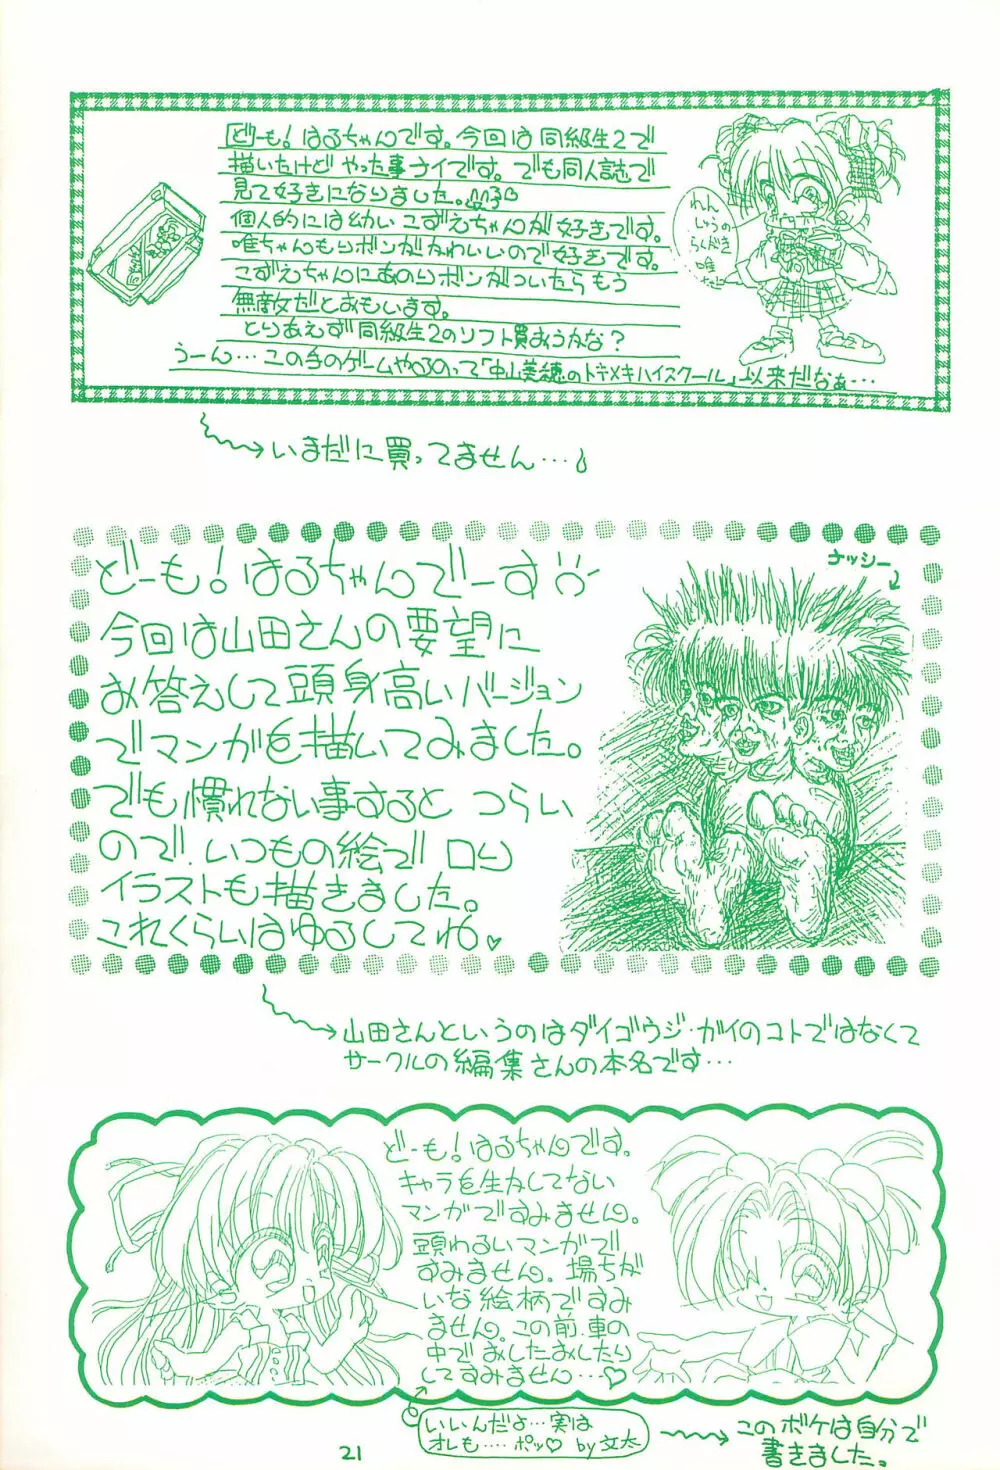 どーも！はるちゃんです。今回は同級生2で
描いたけどやった事ナイです。でも同人誌で
見て好きになりました。
個人的には幼いこずえちゃんが好きです。
唯ちゃんもリボンがかわいいので好きです。
こずえちゃんにあのリボンがついたらもう
無敵だとおもいます。
とりあえず同級生2のソフト買おうかな？
うーん…この手のゲームやるのって「中山美穂のトキメキハイスクール」以来だなぁ…
れん
しゅうの
らくがき
唯
いまだに買ってません…
どーも！はるちゃんでーす
今回は山田さんの要望に
お答えして頭身高いバージョン
でマンガを描いてみました。
でも慣れない事すると つらい
ので、いつもの絵で ロリ
イラストも描きました。
これくらいはゆるしてね♥
ナッシー
山田さんというのはダイゴウジ・ガイのコトではなくて
サークルの編集さんの本名です…
どーも！はるちゃんです。
キャラを生かしてない
マンガですみません。
頭わるいマンガで
すみません。場ちが
いな絵柄ですみ
ません。この前、車の
中でおしたおしたり
してすみません…♡
いいんだよ…実は
オレも…ポッ♡ by 文太
このボケは自分で
書きました。
21